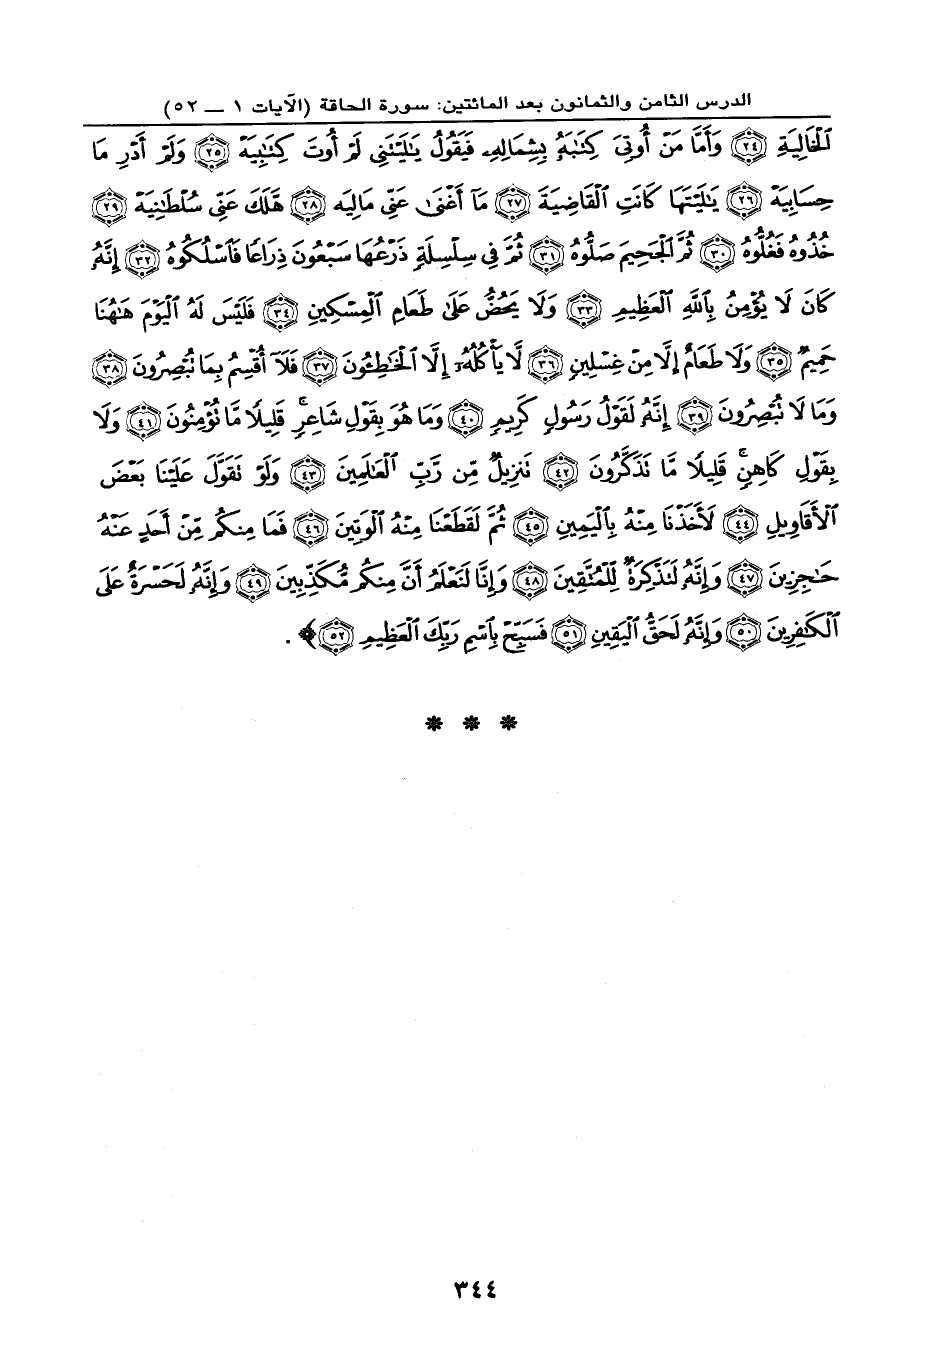 الدرس الثامن والثمانون بعد المائتين: سورة الحاقة (الآيات ١ — ٥٢)
ٱلْخَالِيَةِ ٢٤ وَأَمَّا مَنْ أُوتِىَ كِتَٰبَهُۥ بِشِمَالِهِۦ فَيَقُولُ يَٰلَيْتَنِى لَمْ أُوتَ كِتَٰبِيَهْ ٢٥ وَلَمْ أَدْرِ مَا
حِسَابِيَهْ ٢٦ يَٰلَيْتَهَا كَانَتِ ٱلْقَاضِيَةَ ٢٧ مَآ أَغْنَىٰ عَنِّى مَالِيَهْ ٢٨ هَلَكَ عَنِّى سُلْطَٰنِيَهْ ٢٩
خُذُوهُ فَغُلُّوهُ ٣٠ ثُمَّ ٱلْجَحِيمَ صَلُّوهُ ٣١ ثُمَّ فِى سِلْسِلَةٍ ذَرْعُهَا سَبْعُونَ ذِرَاعًا فَٱسْلُكُوهُ ٣٢ إِنَّهُۥ
كَانَ لَا يُؤْمِنُ بِٱللَّهِ ٱلْعَظِيمِ ٣٣ وَلَا يَحُضُّ عَلَىٰ طَعَامِ ٱلْمِسْكِينِ ٣٤ فَلَيْسَ لَهُ ٱلْيَوْمَ هَٰهُنَا
حَمِيمٌ ٣٥ وَلَا طَعَامٌ إِلَّا مِنْ غِسْلِينٍ ٣٦ لَّا يَأْكُلُهُۥٓ إِلَّا ٱلْخَٰطِـُٔونَ ٣٧ فَلَآ أُقْسِمُ بِمَا تُبْصِرُونَ ٣٨
وَمَا لَا تُبْصِرُونَ ٣٩ إِنَّهُۥ لَقَوْلُ رَسُولٍ كَرِيمٍ ٤٠ وَمَا هُوَ بِقَوْلِ شَاعِرٍ ۚ قَلِيلًا مَّا تُؤْمِنُونَ ٤١ وَلَا
بِقَوْلِ كَاهِنٍ ۚ قَلِيلًا مَّا تَذَكَّرُونَ ٤٢ تَنزِيلٌ مِّن رَّبِّ ٱلْعَٰلَمِينَ ٤٣ وَلَوْ تَقَوَّلَ عَلَيْنَا بَعْضَ
ٱلْأَقَاوِيلِ ٤٤ لَأَخَذْنَا مِنْهُ بِٱلْيَمِينِ ٤٥ ثُمَّ لَقَطَعْنَا مِنْهُ ٱلْوَتِينَ ٤٦ فَمَا مِنكُم مِّنْ أَحَدٍ عَنْهُ
حَٰجِزِينَ ٤٧ وَإِنَّهُۥ لَتَذْكِرَةٌ لِّلْمُتَّقِينَ ٤٨ وَإِنَّا لَنَعْلَمُ أَنَّ مِنكُم مُّكَذِّبِينَ ٤٩ وَإِنَّهُۥ لَحَسْرَةٌ عَلَى
ٱلْكَٰفِرِينَ ٥٠ وَإِنَّهُۥ لَحَقُّ ٱلْيَقِينِ ٥١ فَسَبِّحْ بِٱسْمِ رَبِّكَ ٱلْعَظِيمِ ٥٢﴾ .
* * *
٣٤٤